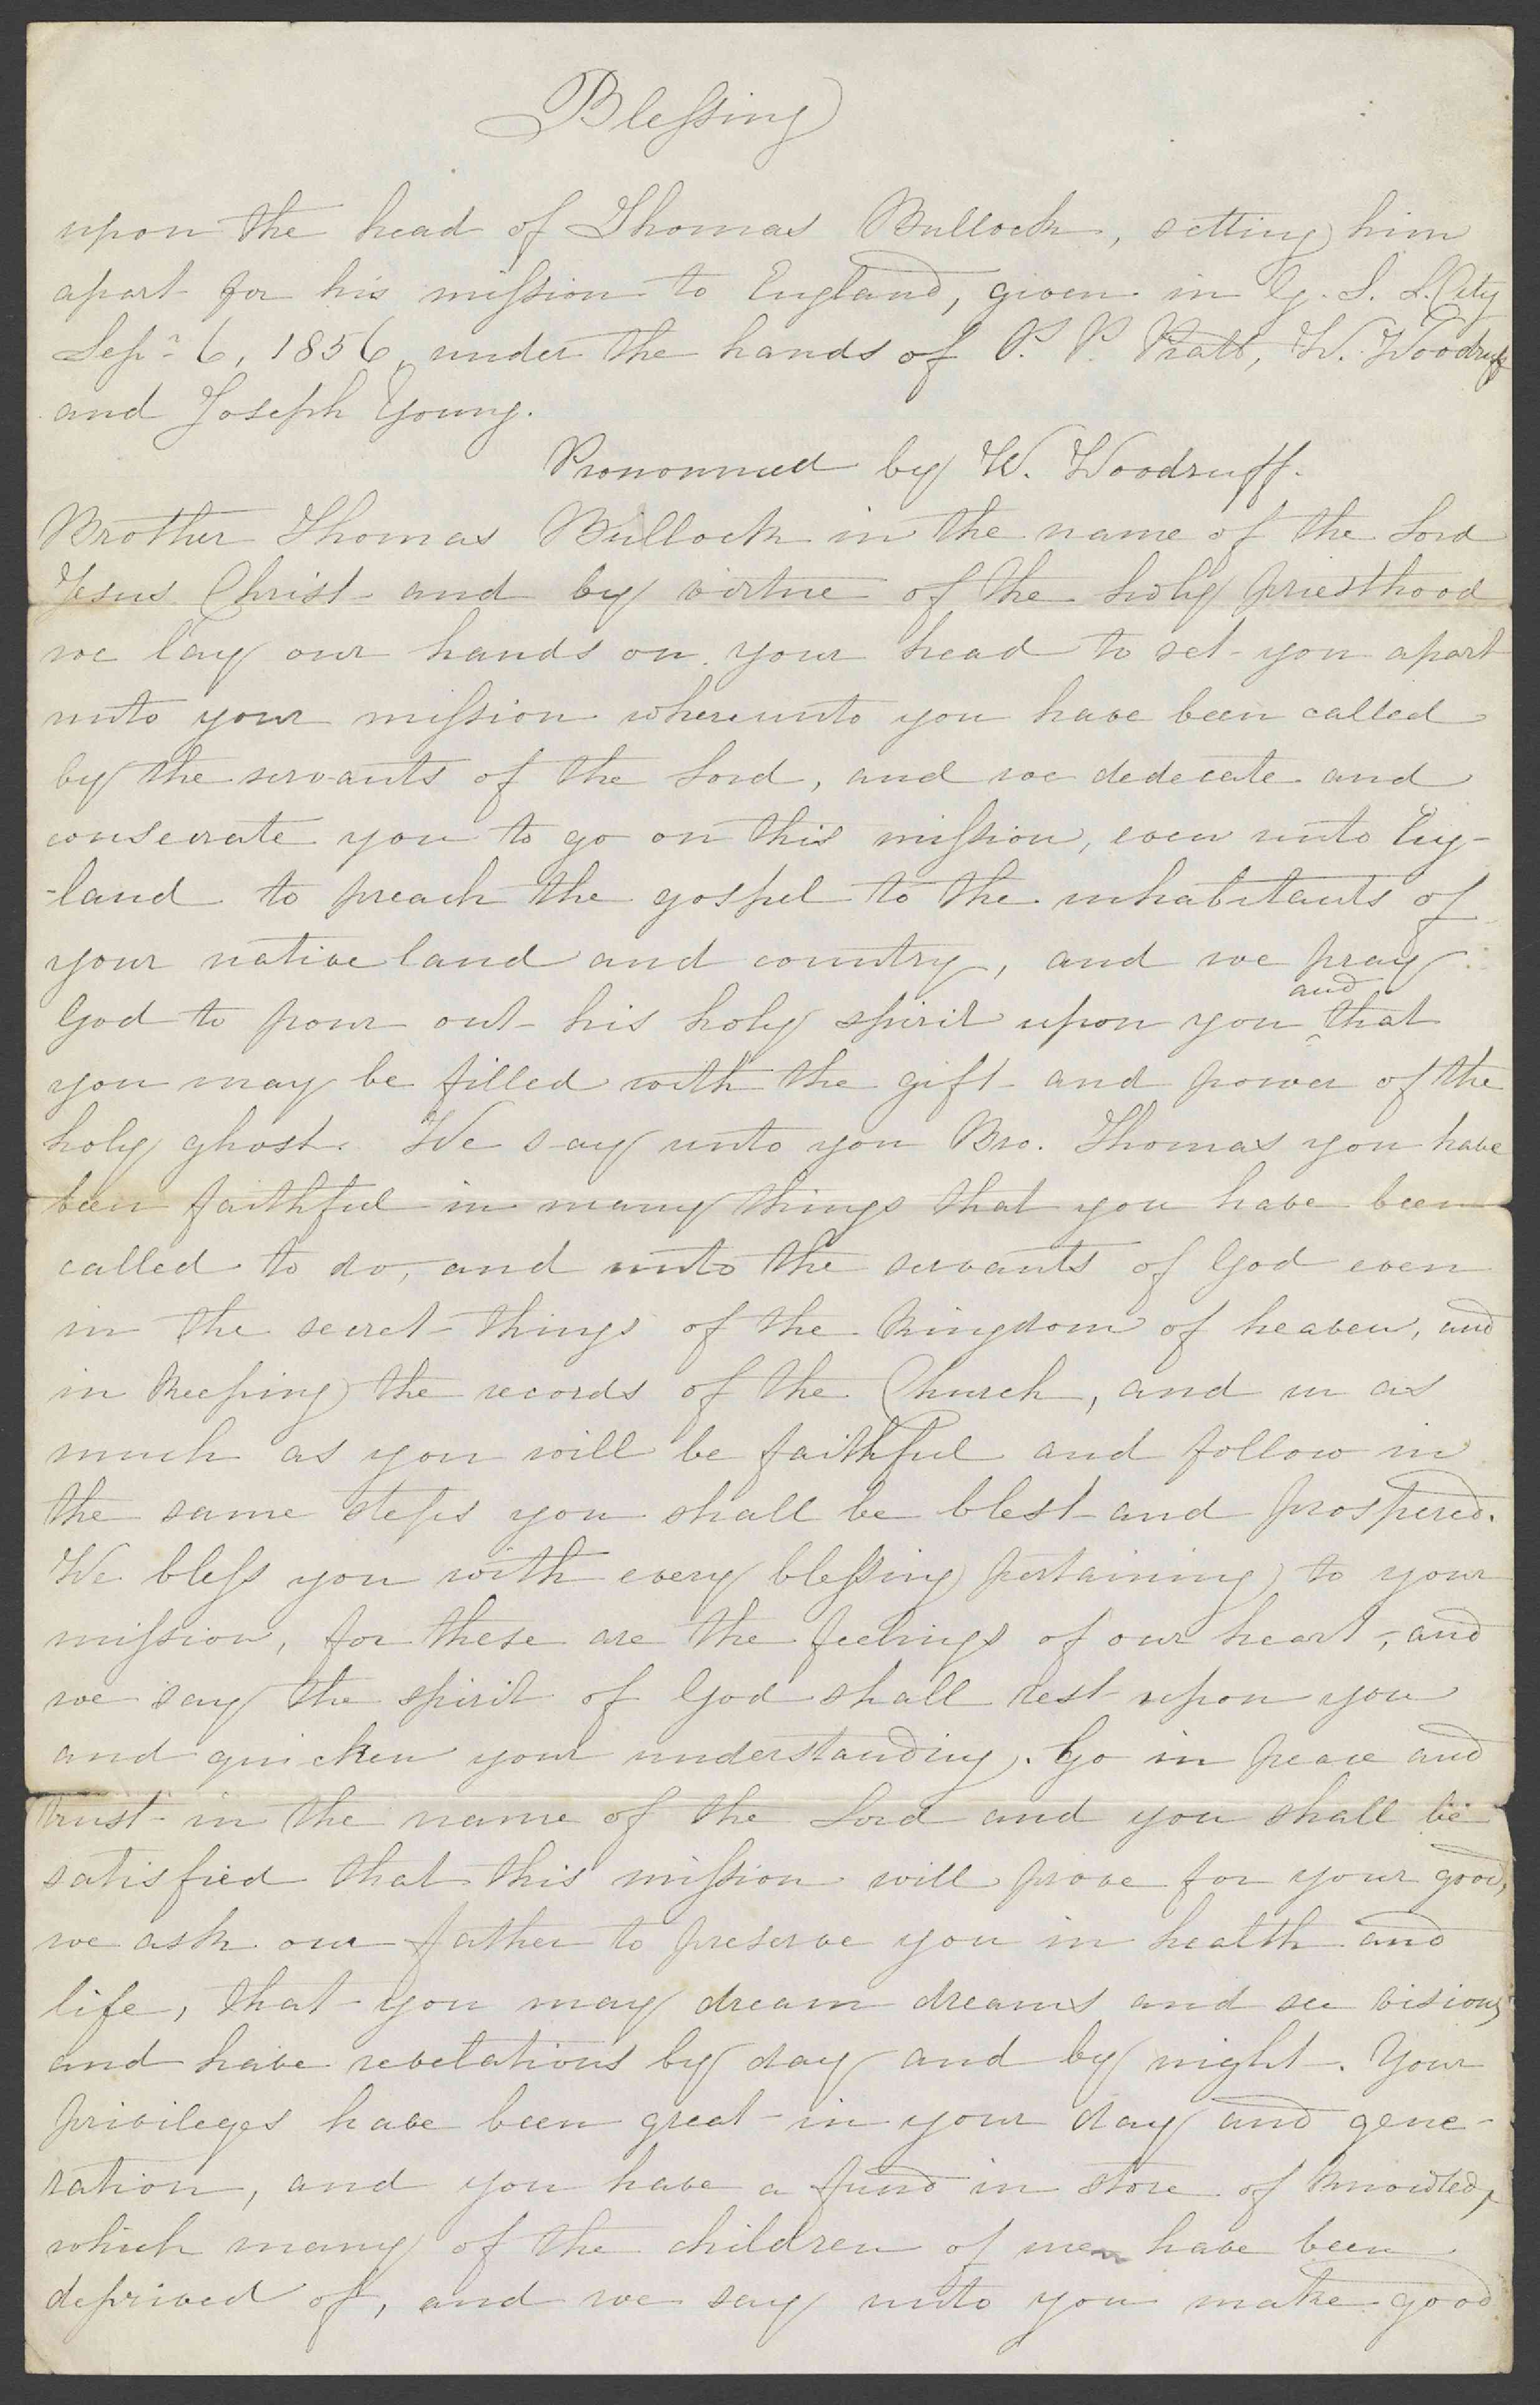 Blessing
upon the head of Thomas Bullock, setting him
apart for his mission to England, given in G. S. L. City
Sepr 6, 1856, under the hands of P. P. Pratt, W. Woodruff
and Joseph Young.
Pronounced by W. Woodruff.
Brother Thomas Bullock in the name of the Lord
Jesus Christ and by virtue of the holy priesthood
we lay our hands on your head to set you apart
unto your mission whereunto you have been called
by the servants of the Lord, and we dedecate and
consecrate you to go on this mission, even unto Eng-
-land to preach the gospel to the inhabitants of
your native land and country, and we pray
God to pour out his holy spirit upon you and that
you may be filled with the gift and power of the
holy ghost. We say unto you Bro. Thomas you have
been faithful in many things that you have been
called to do, and unto the servants of God even
in the secret things of the kingdom of heaven, and
in keeping the records of the Church, and in as
much as you will be faithful and follow in
the same steps you shall be blest and prospered.
We bless you with every blessing pertaining to your
mission, for these are the feelings of our heart, and
we say the spirit of God shall rest upon you
and quicken your understanding. Go in peace and
trust in the name of the Lord and you shall be
satisfied that this mission will prove for your good,
we ask our father to preserve you in health and
life, that you may dream dreams and see visions
and have revelations by day and by night. Your
privileges have been great in your day and gene-
ration, and you have a fund in store of knowledge,
which many of the children of men have been
deprived of, and we say unto you make good